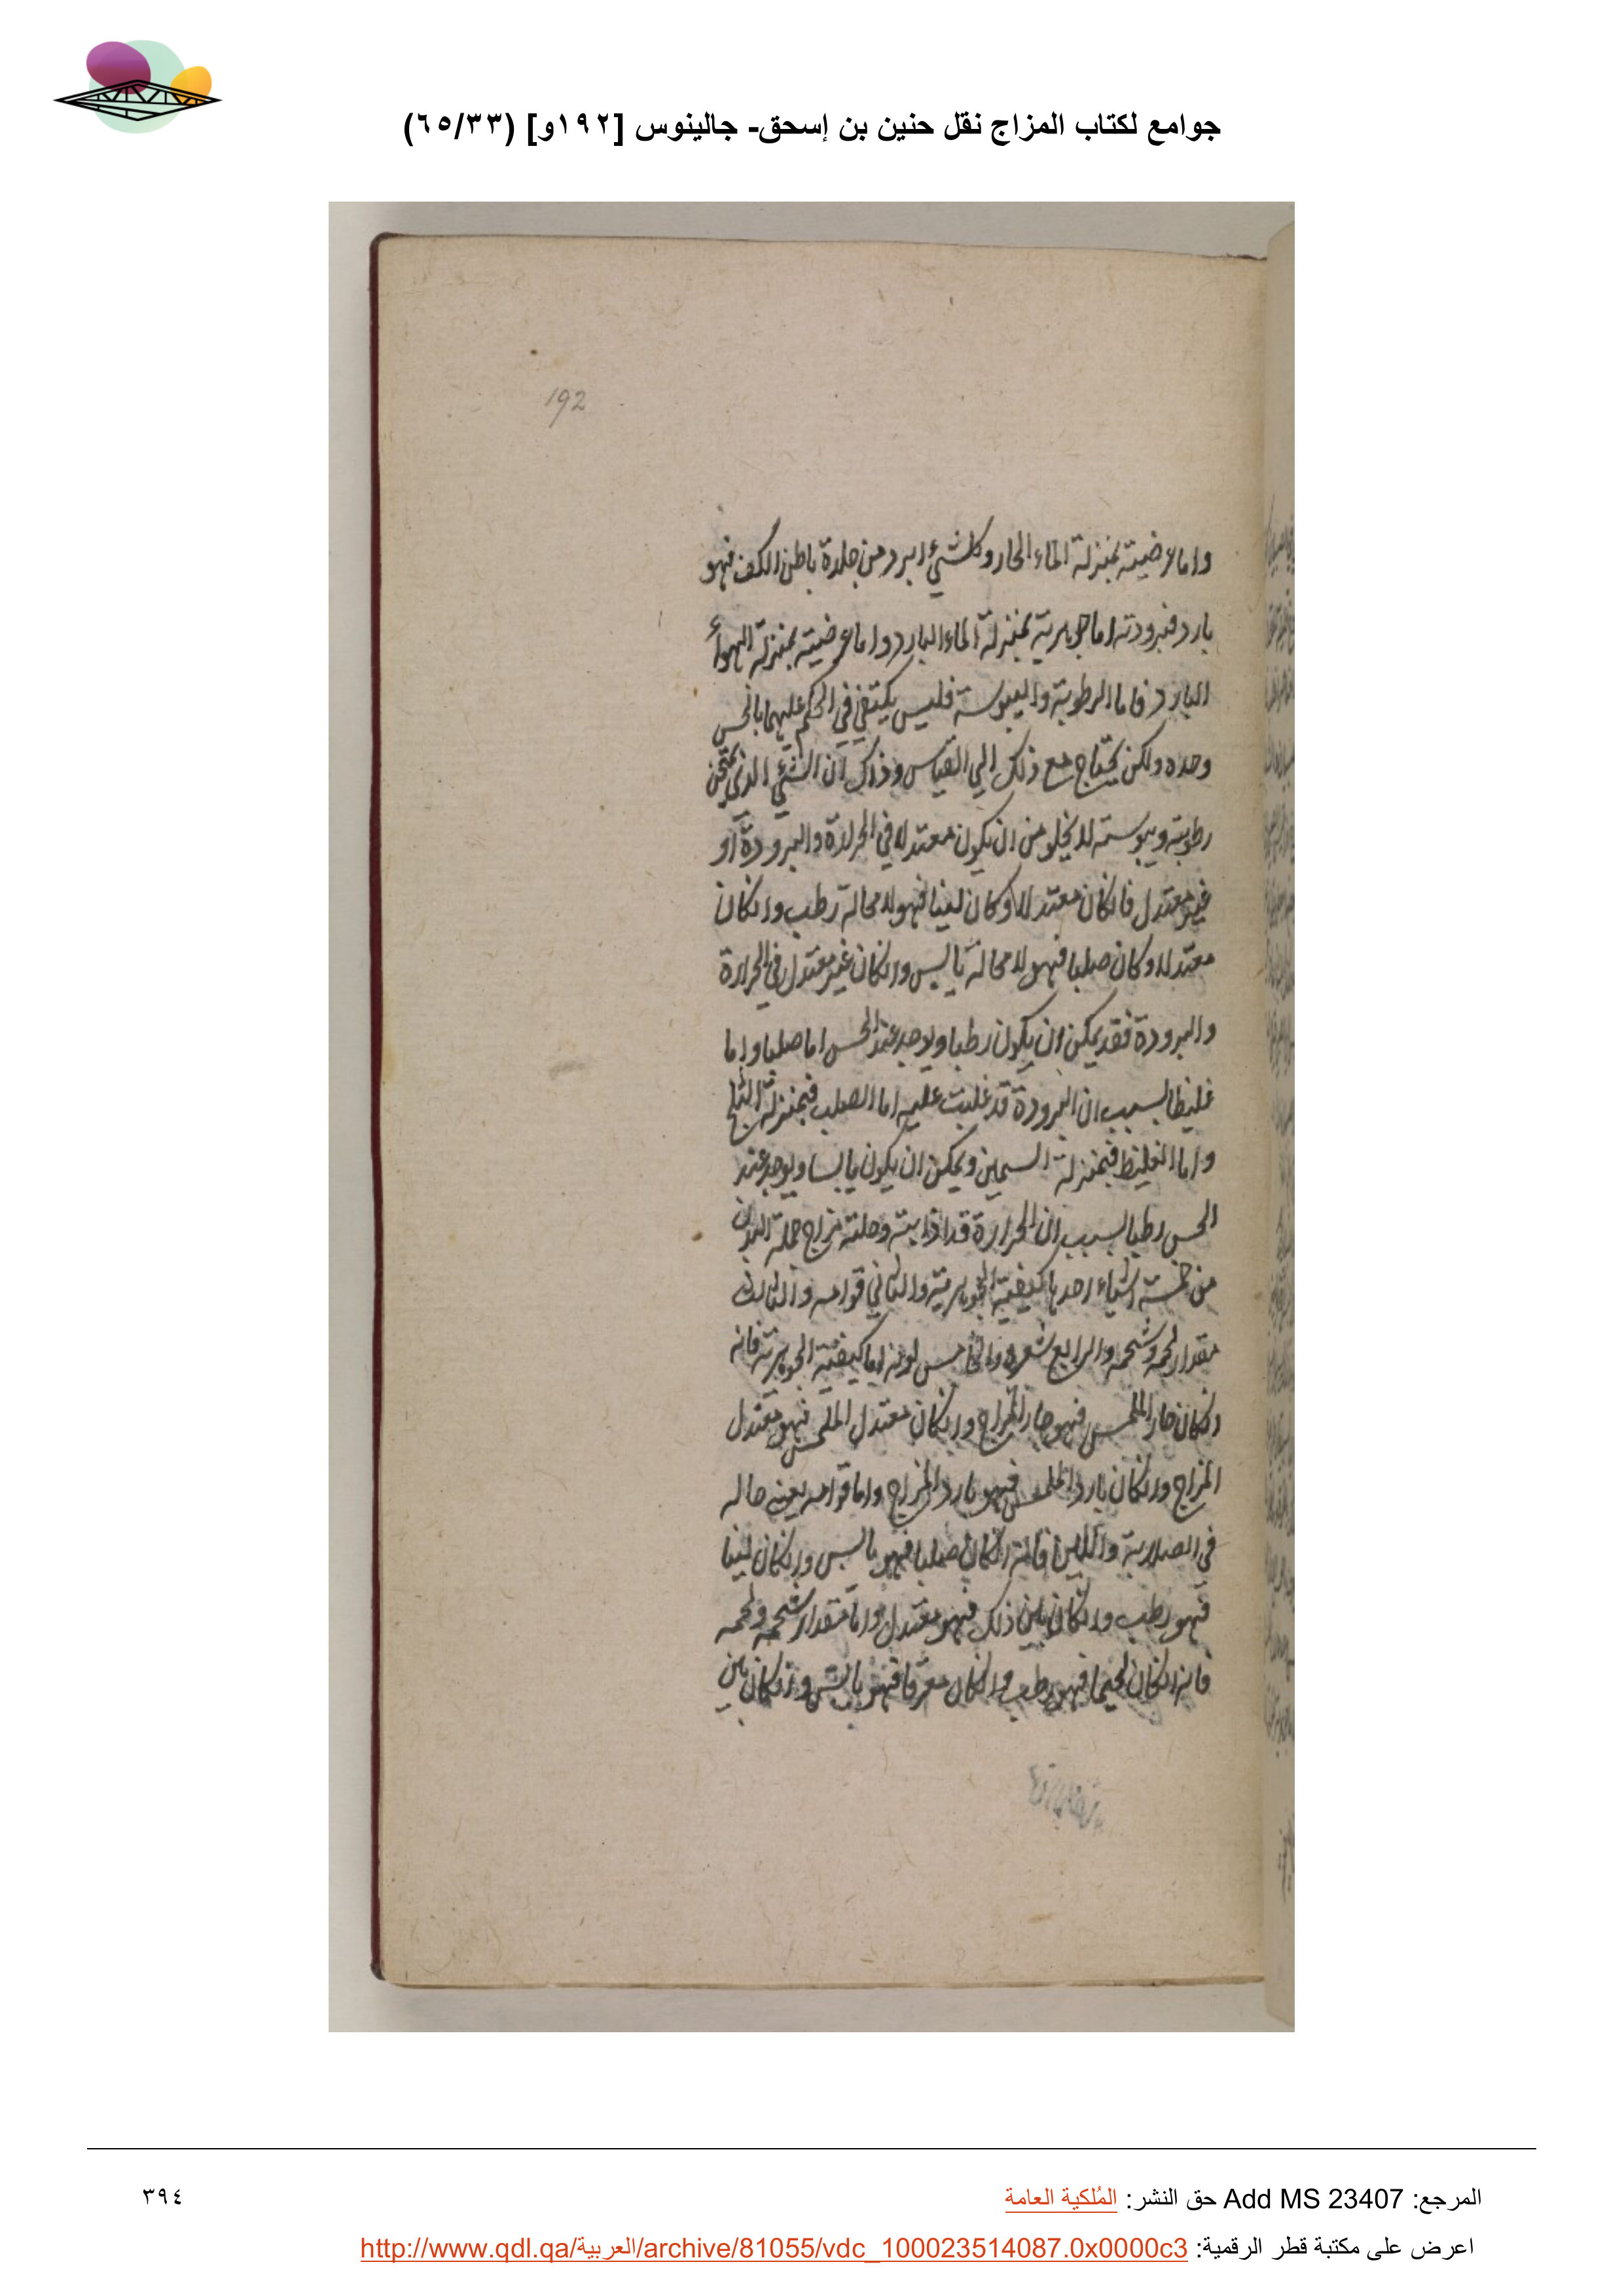 جوامع لكتاب المزاج نقل حنين بن إسحق- جالينوس [١٩٢و] (٦٥/٣٣)
192
واما عرضيته بمنزلة الماء الحار وكل شيء ابرد من جلدة باطن الكف فهو
بارد فبرودته اما جوهرية بمنزلة الماء البارد واما عرضيته بمنزلة الهواء
البارد فاما الرطوبة واليبوسة فليس يكتفي في الحكم عليهما بالحس
وحده ولكن يحتاج مع ذلك الي القياس وذلك ان الشيء الذي يمتحن
رطوبته ويبوسته لا يخلو من ان يكون معتدلا في الحرارة والبرودة او
غير معتدل فانكان معتدلا وكان لينا فهو لا محالة رطب وانكان
معتدلا وكان صلبا فهو لا محالة يابس وانكان غير معتدل في الحرارة
والبرودة فقد يمكن ان يكون رطبا ويوجد عند الحس اما صلبا واما
غليظا بسبب ان البرودة قد غلبت عليه اما الصلب فبمنزلة الثلج
واما الغليظ فبمنزلة السمين ويمكن ان يكون يابسا ويوجد عند
الحس رطبا بسبب ان الحرارة قد اذابته وحلته مزاج جملة البدن
من خمسة اشياء احدها كيفيته الجوهرية والثاني قوامه والثالث
مقدار لحمه وشحمه والرابع شعره والخامس لونه اما كيفيته الجوهرية فانه
انكان حار الملمس فهو حار المزاج وانكان معتدل الملمس فهو معتدل
المزاج وانكان بارد الملمس فهو بارد المزاج واما قوامه يعني حاله
في الصلابة واللين فانه انكان صلبا فهو يابس وانكان لينا
فهو رطب وانكان بين ذلك فهو معتدل واما مقدار شحمه ولحمه
فانه انكان لحيما فهو رطب وانكان معرقا فهو يابس وانكان بين
المرجع: Add MS 23407 حق النشر: المُلكية العامة
٣٩٤
اعرض على مكتبة قطر الرقمية: http://www.qdl.qa/العربية/archive/81055/vdc_100023514087.0x0000c3